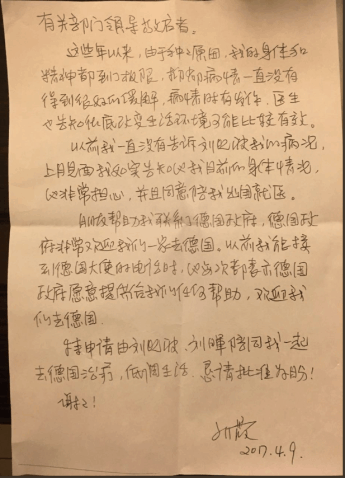 有关部门领导敬启者。
这些年以来,由于种种原因,我的身体和
精神都到了极限,抑郁病情一直没有
得到很好的缓解,病情时有发作,医生
也告知彻底改变生活环境可能比较有效。
以前我一直没有告诉刘晓波我的病况,
上月见面我如实告知他我目前的身体情况,
他非常担心,并且同意陪我出国就医。
朋友帮助我联系了德国政府,德国政
府非常欢迎我们一家去德国。以前我能接
到德国大使的电话时,他每次都表示德国
政府愿意提供给我们任何帮助,欢迎我
们去德国。
特申请由刘晓波、刘晖陪同我一起
去德国治疗,低调生活。恳请批准为盼!
谢谢!
刘霞
2017.4.9.